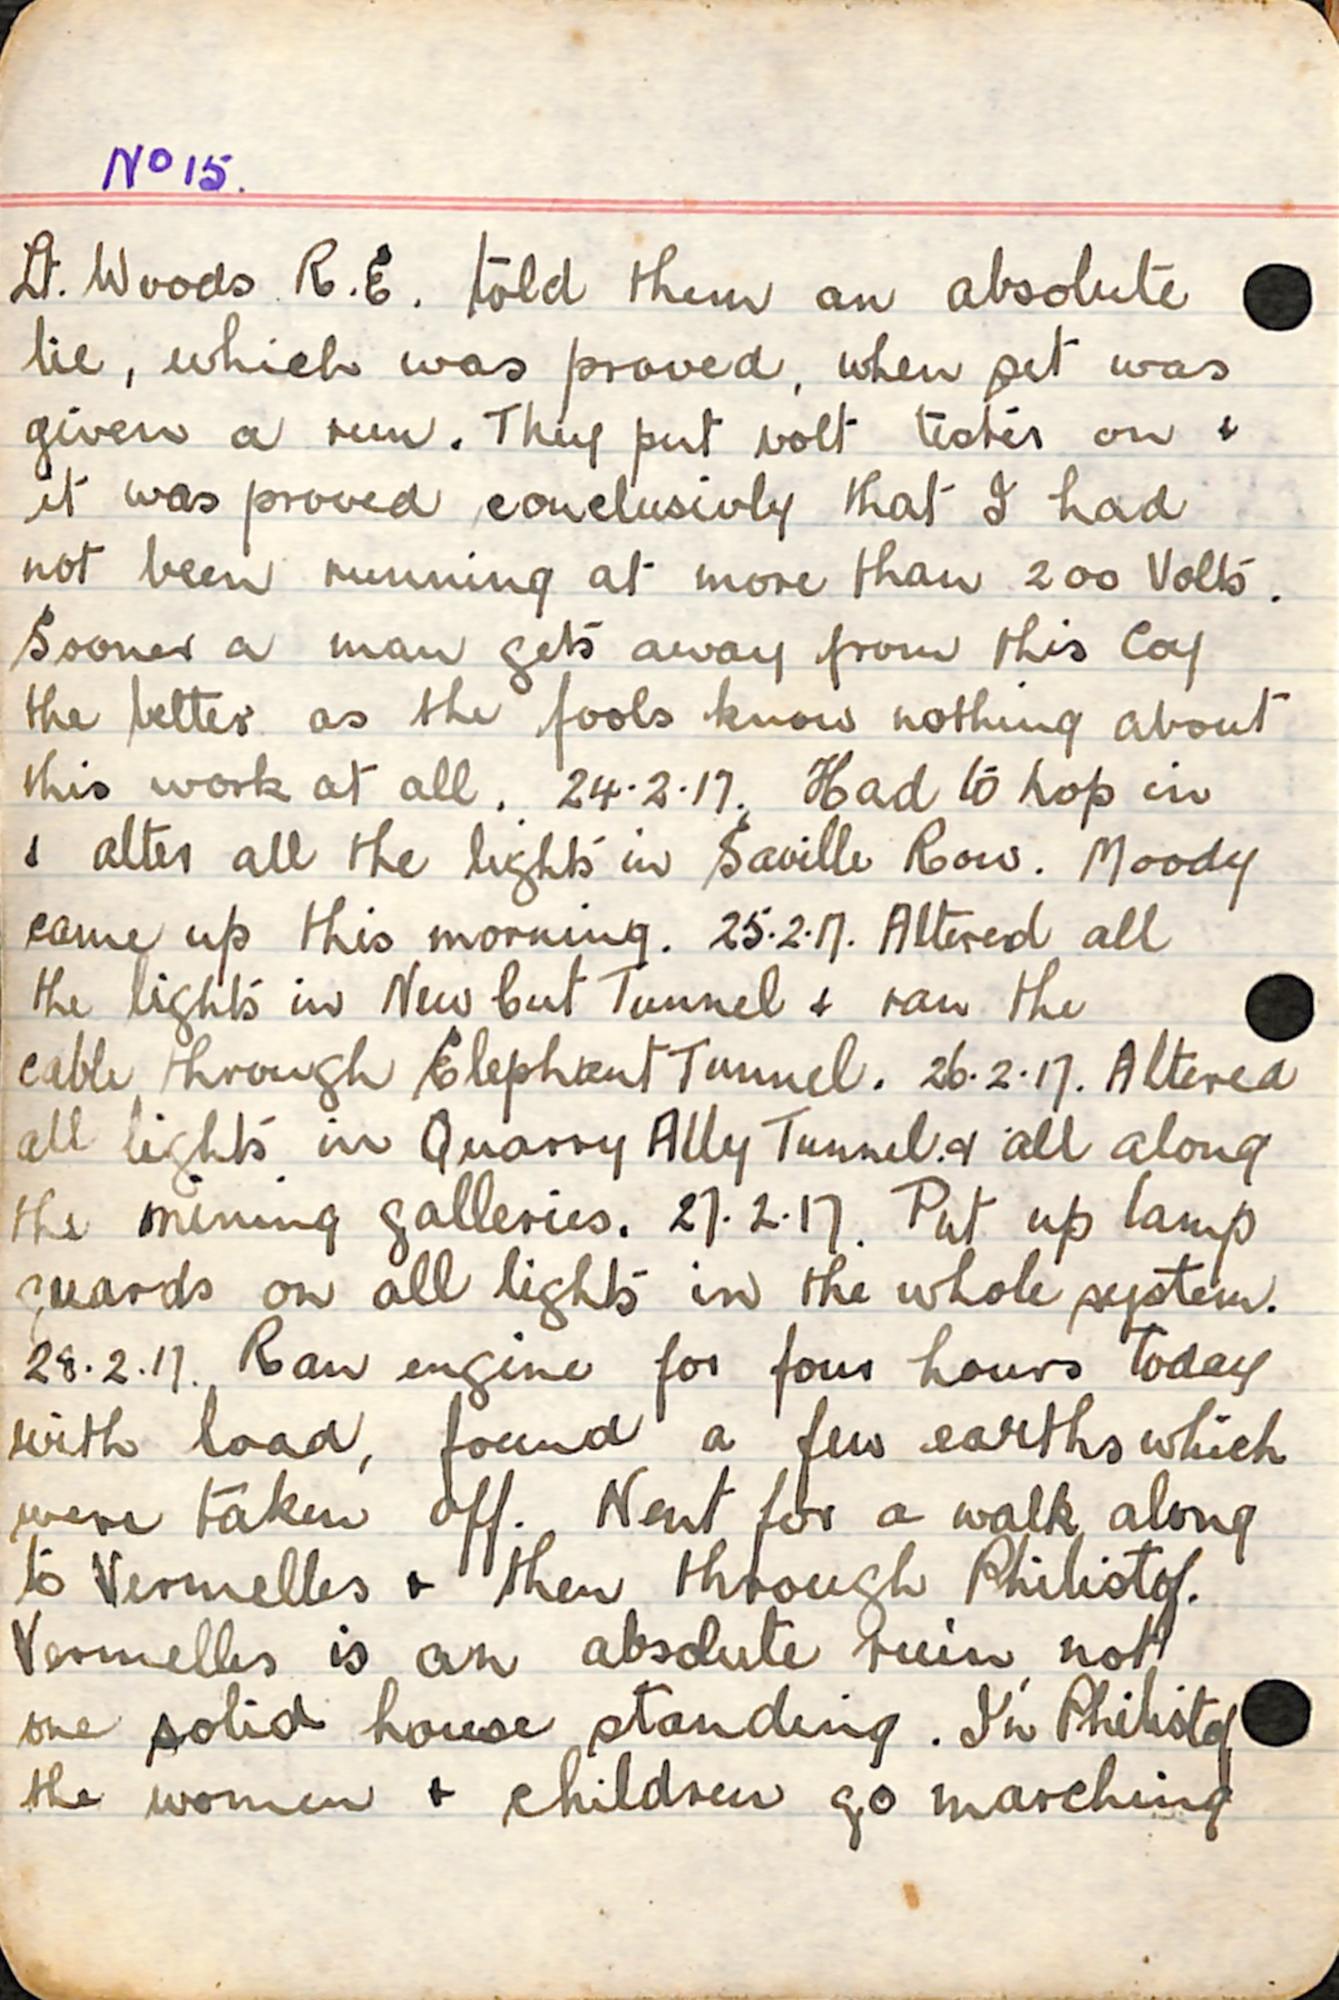 No 15.
Lt. Woods R.E. told them an absolute
lie, which was proved, when set was
given a run. They put volt tester on &
it was proved conclusivly that I had
not been running at more than 200 Volts.
Sooner a man gets away from this Coy
the better as the fools know nothing about
this work at all. 24.2.17. Had to hop in
& alter all the lights in Saville Row. Moody
came up this morning. 25.2.17. Altered all
the lights in New Cut Tunnel & ran the
cable through Elephant Tunnel. 26.2.17. Altered
all lights in Quarry Ally Tunnel. & all along
the mining galleries. 27.2.17. Put up lamp
guards on all lights in the whole system.
28.2.17. Ran engine for four hours today
with load, found a few earths which
were taken off. Went for a walk along
to Vermelles & then through Philistof.
Vermelles is an absolute ruin, not
one solid house standing. In Philistof
the women & children go marching